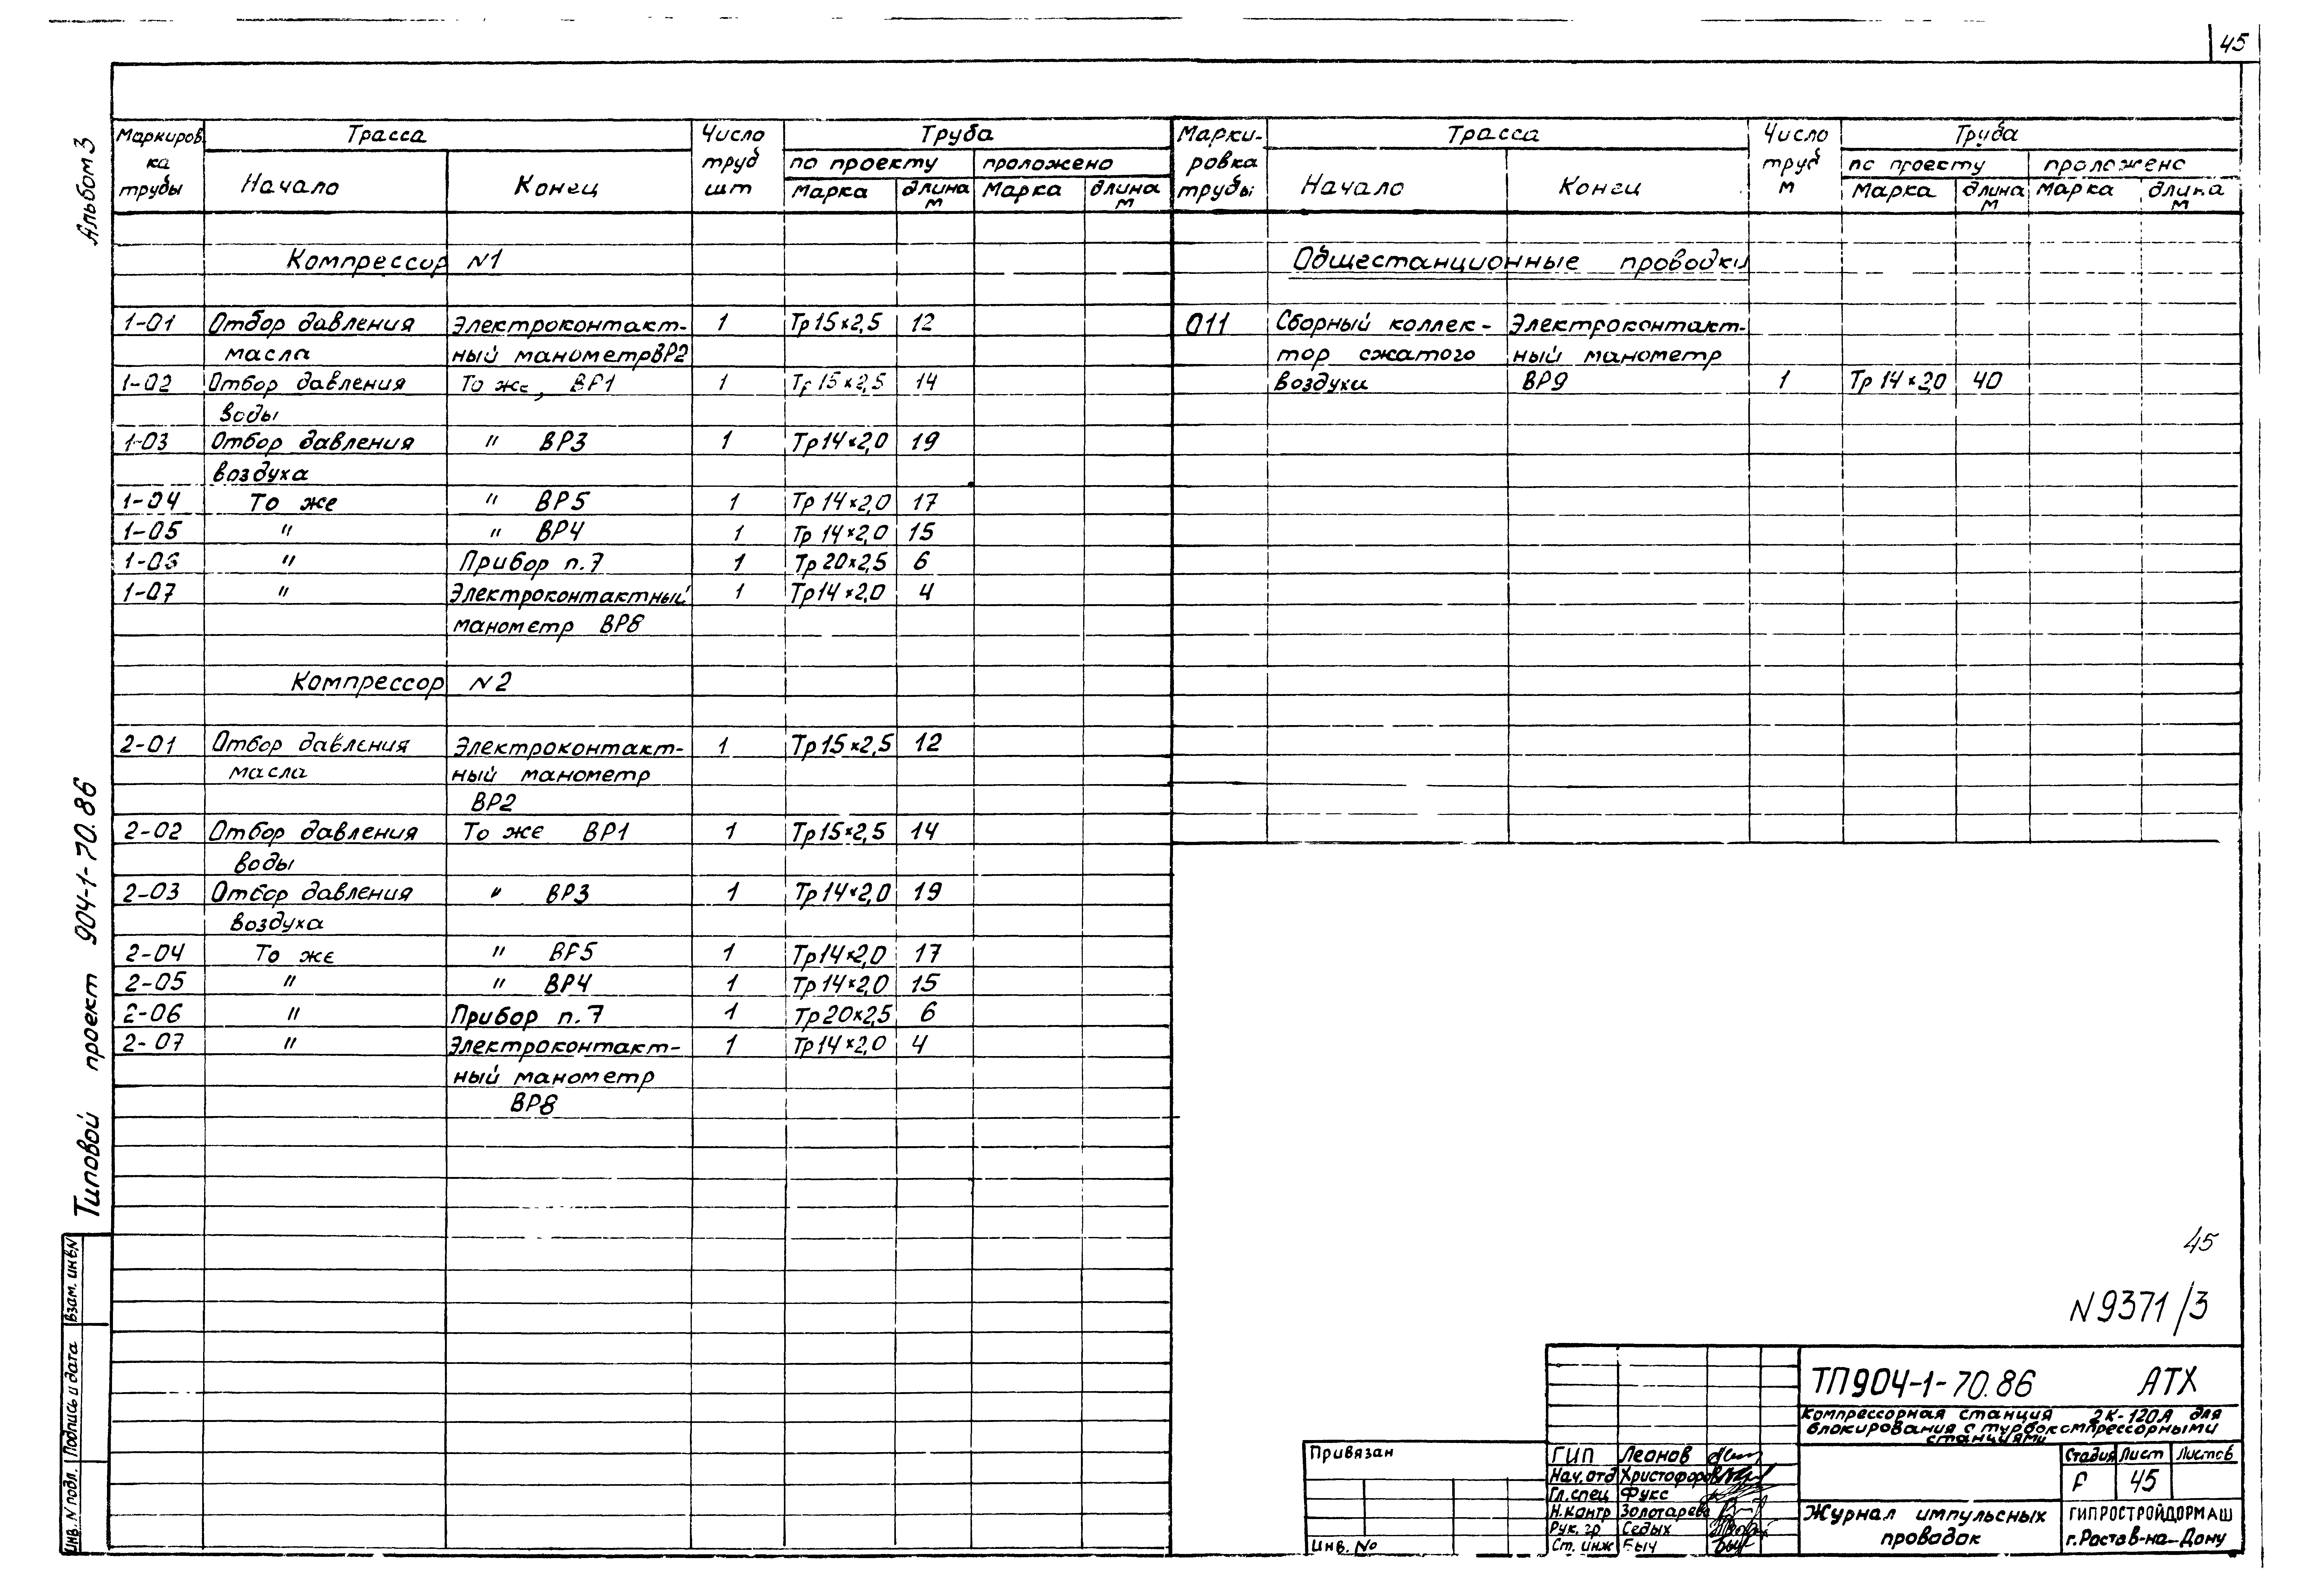 45
Альбом 3
Типовой проект 904-1-70.86
Взам. инв. N
Подпись и дата
Инв. N подл.
Маркиров ка трубы
Трасса
Число труб шт
Труба
по проекту проложено
Начало Конец
марка длина м марка длина м
Компрессор N1
1-01 Отбор давления Электроконтакт- 1 Тр 15×2,5 12
масла ный манометр ВР2
1-02 Отбор давления То же, ВР1 1 Тр 15×2,5 14
воды
1-03 Отбор давления " ВР3 1 Тр 14×2,0 19
воздуха
1-04 То же " ВР5 1 Тр 14×2,0 17
1-05 " " ВР4 1 Тр 14×2,0 15
1-06 " Прибор п.7 1 Тр 20×2,5 6
1-07 " Электроконтактный 1 Тр 14×2,0 4
манометр ВР8
Компрессор N2
2-01 Отбор давления Электроконтакт- 1 Тр 15×2,5 12
масла ный манометр
ВР2
2-02 Отбор давления То же ВР1 1 Тр 15×2,5 14
воды
2-03 Отбор давления " ВР3 1 Тр 14×2,0 19
воздуха
2-04 То же " ВР5 1 Тр 14×2,0 17
2-05 " " ВР4 1 Тр 14×2,0 15
2-06 " Прибор п.7 1 Тр 20×2,5 6
2-07 " Электроконтакт- 1 Тр 14×2,0 4
ный манометр
ВР8
Марки- ровка трубы
Трасса
Число труб м
Труба
по проекту проложено
Начало Конец
марка длина м марка длина м
Общестанционные проводки
011 Сборный коллек- Электроконтакт-
тор сжатого ный манометр
воздуха ВР9 1 Тр 14×2,0 40
45
N 9371/3
ТП904-1-70.86 АТХ
Компрессорная станция 2К-120А для
блокирования с турбокомпрессорными
станциями
Привязан
Инв. №
ГИП Леонов
Нач. отд Христофоров
Гл. спец Фукс
Н. контр Золотарева
Рук. гр Седых
Ст. инж Быч
Стадия Лист Листов
Р 45
Журнал импульсных
проводок
ГИПРОСТРОЙДОРМАШ
г. Ростов-на-Дону